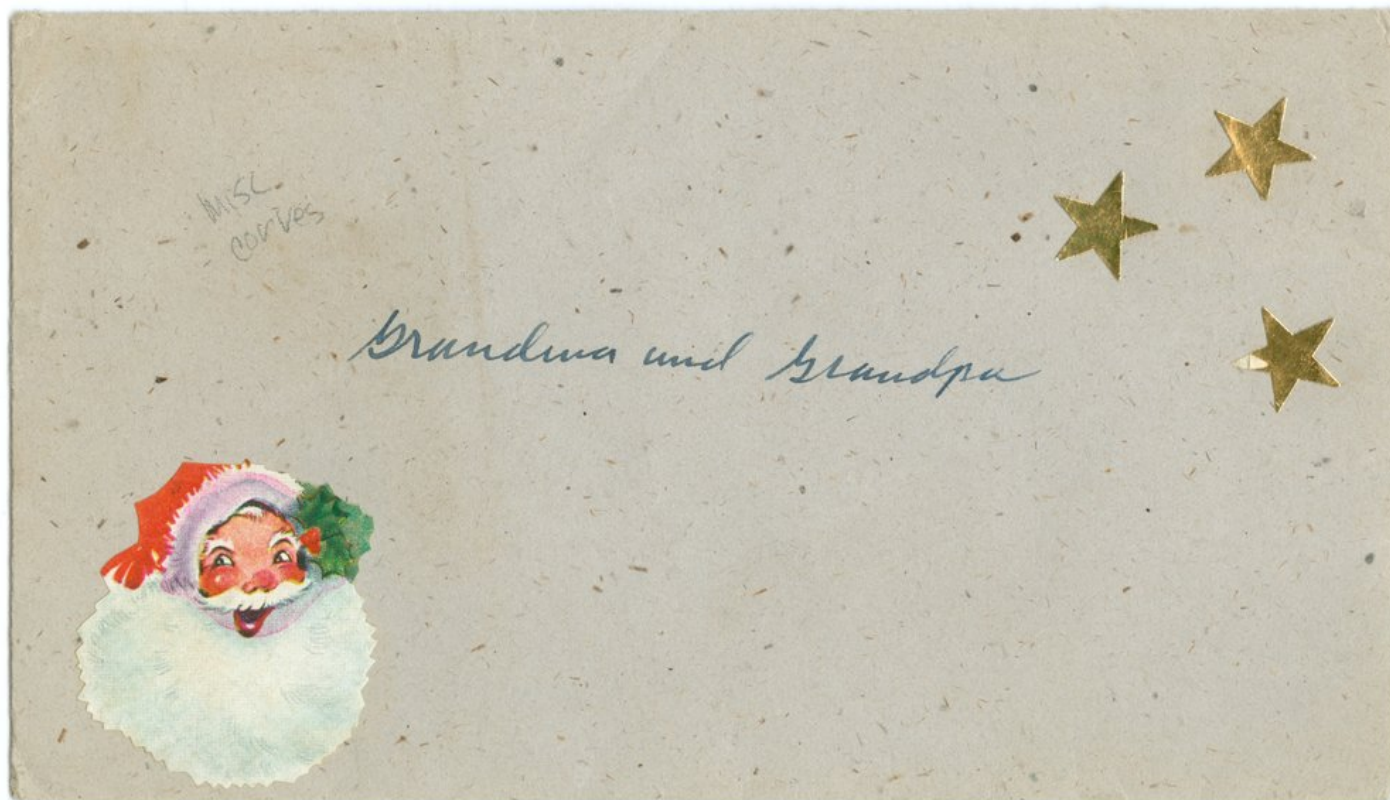 Misc
corres
Grandma and Grandpa